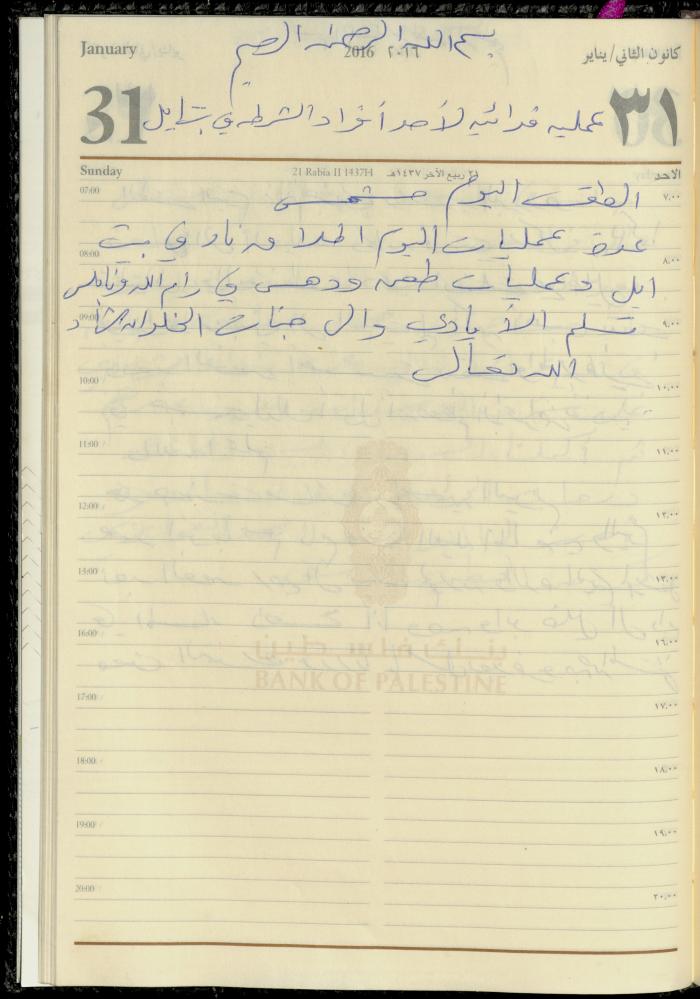 بسم الله الرحمن الرحيم
January
2016 ٢٠١٦
كانون الثاني/يناير
31
٣١
عمليه فدائيه لأحد أفراد الشرطه في بيت ايل
Sunday
21 Rabia II 1437H
٢١ ربيع الآخر ١٤٣٧هـ
الاحد
07:00 ٧,٠٠
الطقس اليوم مشمس
عدة عمليات اليوم اطلاق نار في بيت
08:00 ٨,٠٠
ايل وعمليات طعن ودهس في رام الله ونابلس
09:00 ٩,٠٠
تسلم الأيادي والى جنات الخلد ان شاء
الله تعالى
10:00 ١٠,٠٠
11:00 ١١,٠٠
12:00 ١٢,٠٠
13:00 ١٣,٠٠
16:00 ١٦,٠٠
بنك فلسطين
BANK OF PALESTINE
17:00 ١٧,٠٠
18:00 ١٨,٠٠
19:00 ١٩,٠٠
20:00 ٢٠,٠٠